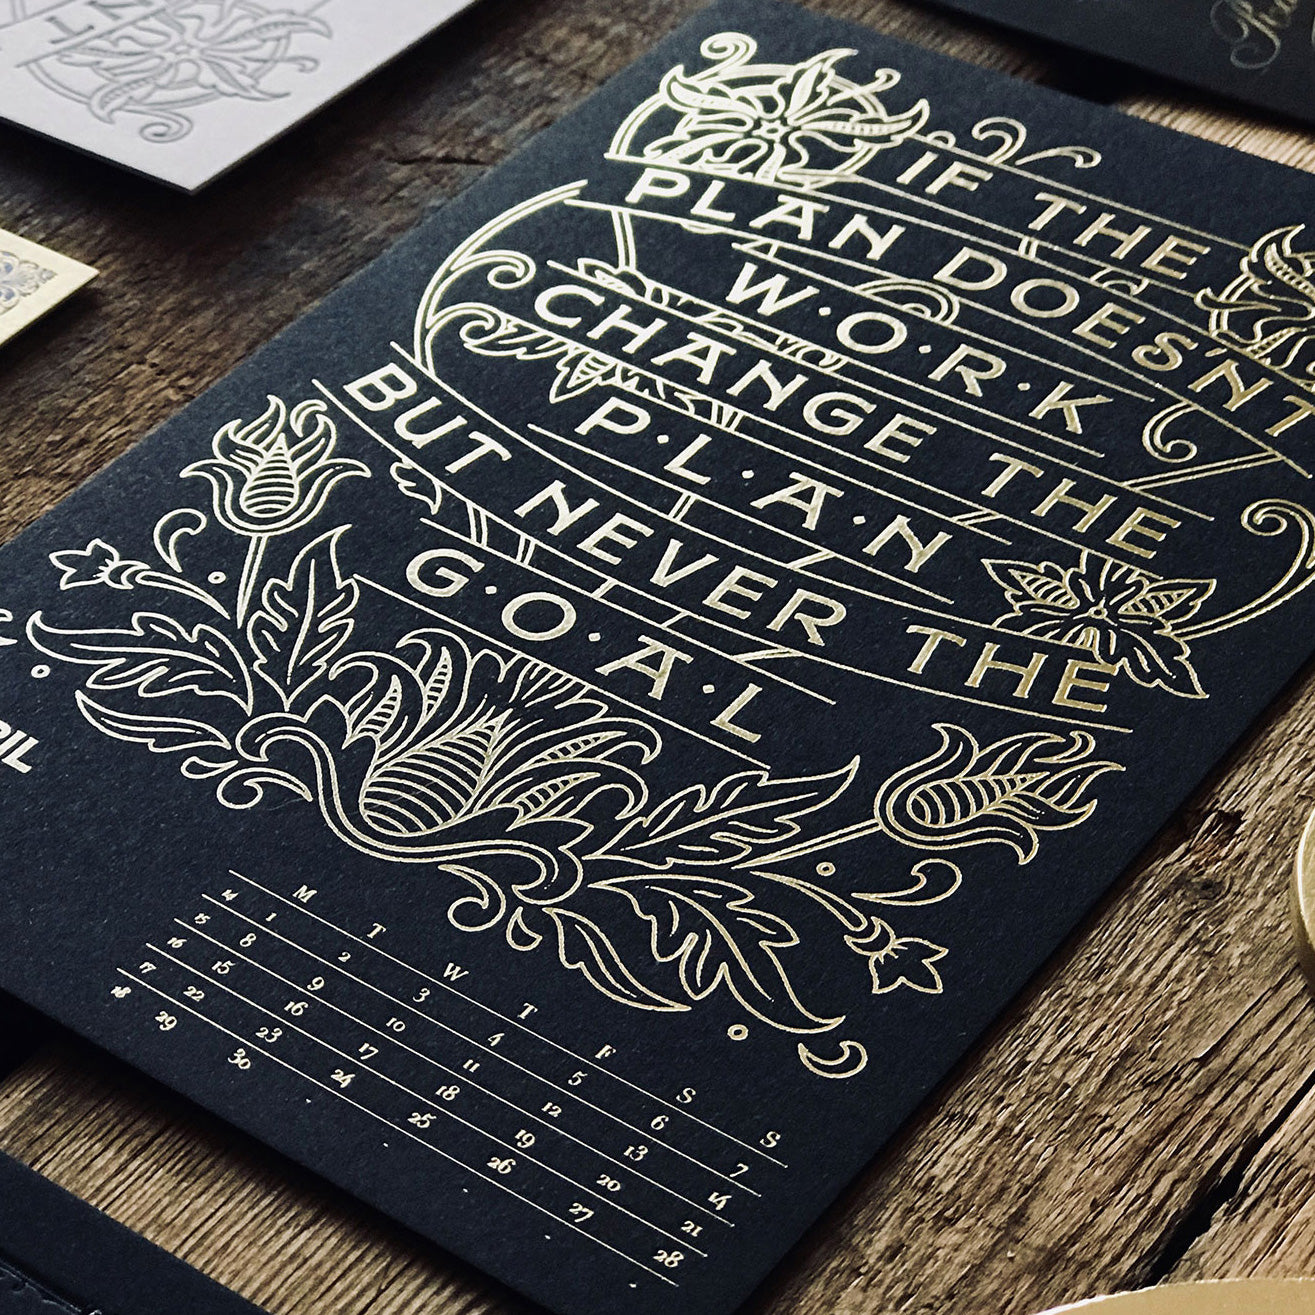 IF THE
PLAN DOES'NT
W·O·R·K
CHANGE THE
P·L·A·N
BUT NEVER THE
G·O·A·L
M T W T F S S
14 1 2 3 4 5 6 7
15 8 9 10 11 12 13 14
16 15 16 17 18 19 20 21
17 22 23 24 25 26 27 28
18 29 30